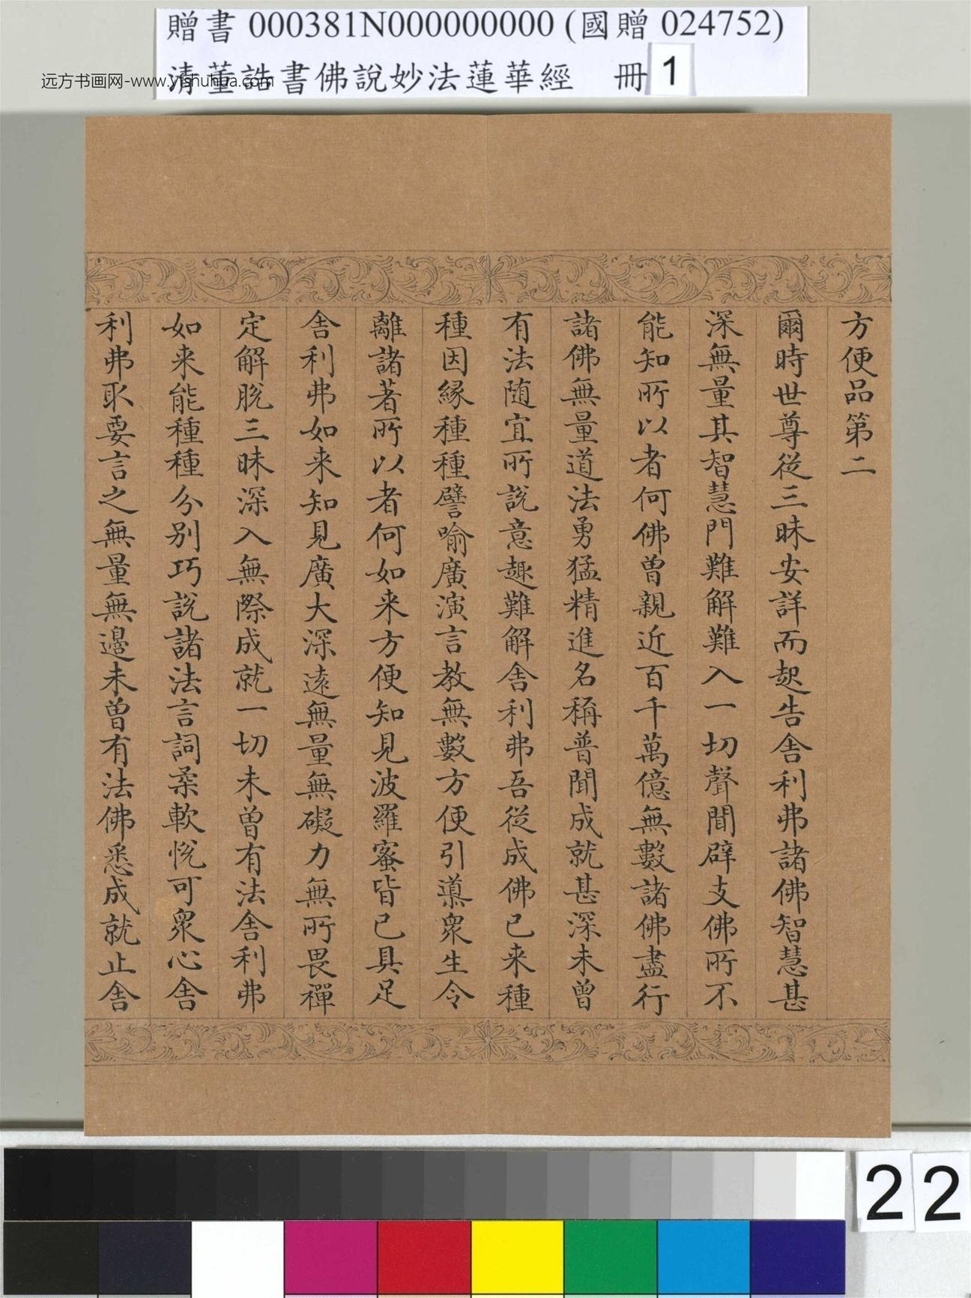 贈書 000381N000000000 (國贈 024752)
清董誥書佛說妙法蓮華經 冊 1
远方书画网-www.yishuhua.com
方便品第二
爾時世尊從三昧安詳而起告舍利弗諸佛智慧甚
深無量其智慧門難解難入一切聲聞辟支佛所不
能知所以者何佛曾親近百千萬億無數諸佛盡行
諸佛無量道法勇猛精進名稱普聞成就甚深未曾
有法随宜所說意趣難解舍利弗吾從成佛已来種
種因緣種種譬喻廣演言教無數方便引導衆生令
離諸著所以者何如来方便知見波羅蜜皆已具足
舍利弗如来知見廣大深遠無量無礙力無所畏禪
定解脫三昧深入無際成就一切未曾有法舍利弗
如来能種種分别巧說諸法言詞柔軟悅可衆心舍
利弗取要言之無量無邊未曾有法佛悉成就止舍
22